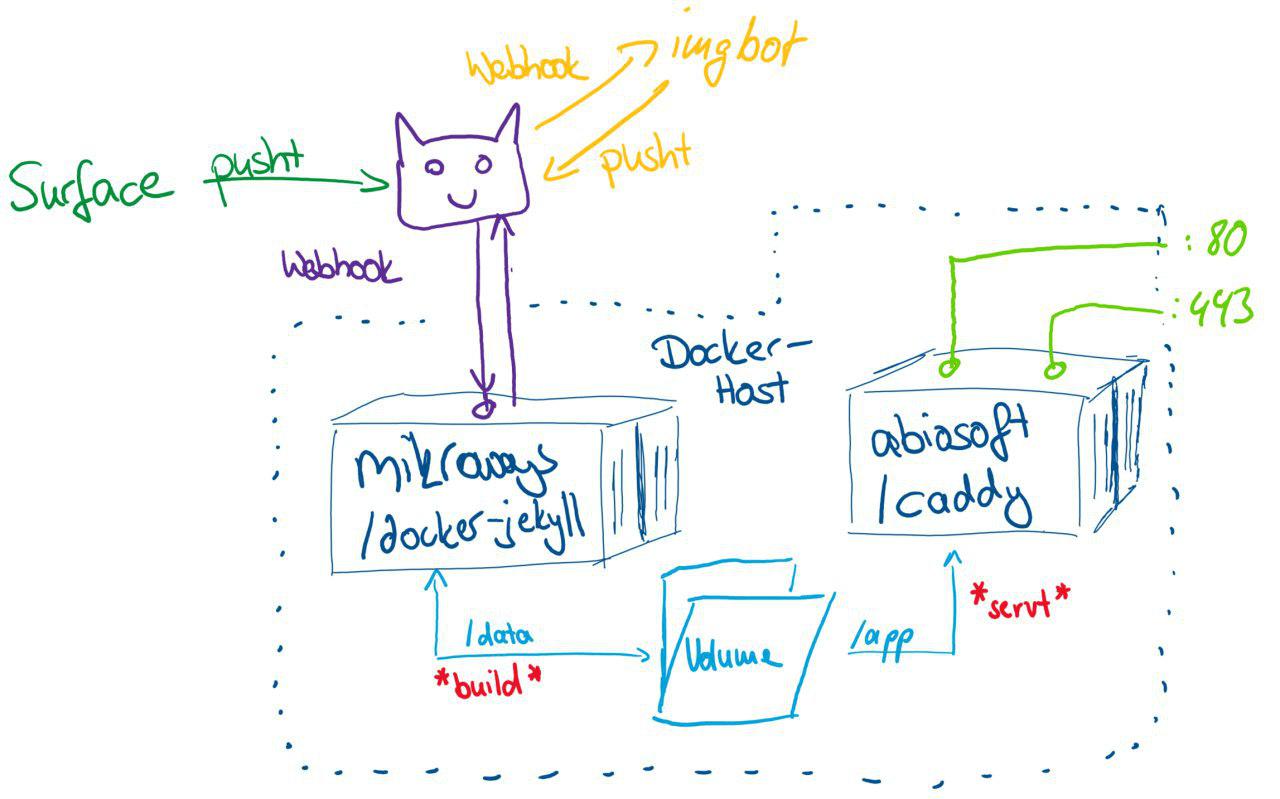 Webhook
imgbot
pusht
Surface
pusht
Webhook
:80
:443
Docker-
Host
mikroways
/docker-jekyll
abiosoft
/caddy
/data
*build*
Volume
/app
*servt*